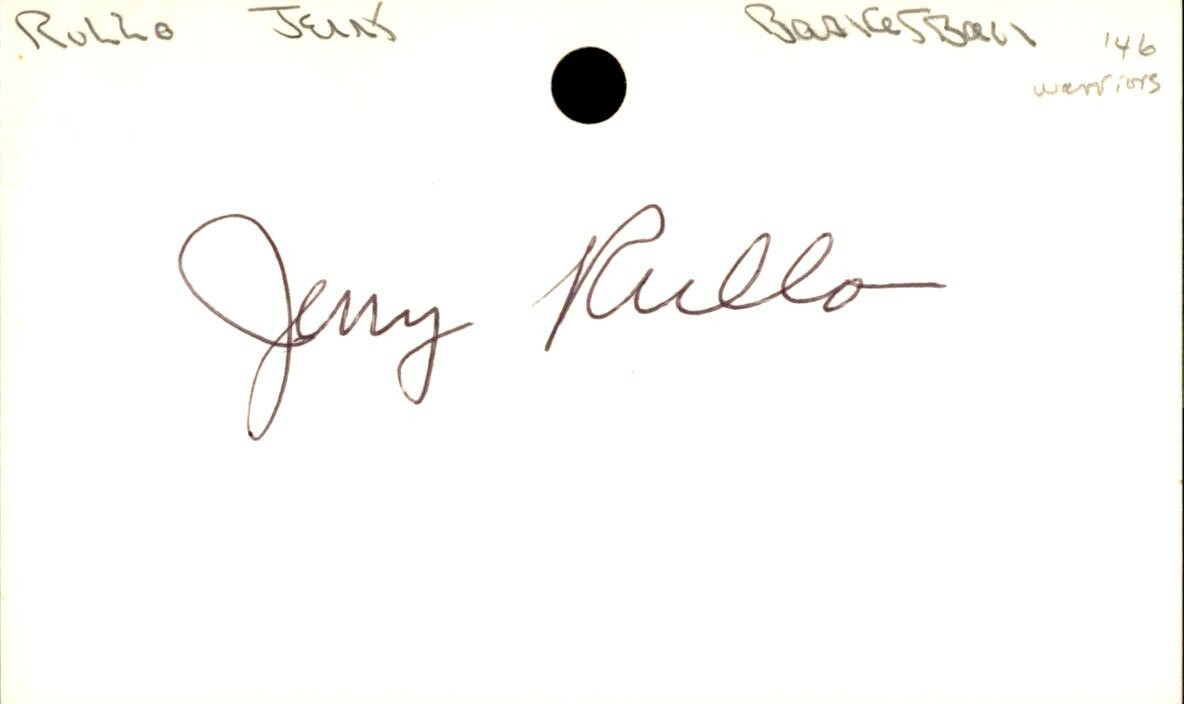 Rullo Jerry Basketball '46
warriors
Jerry Rullo